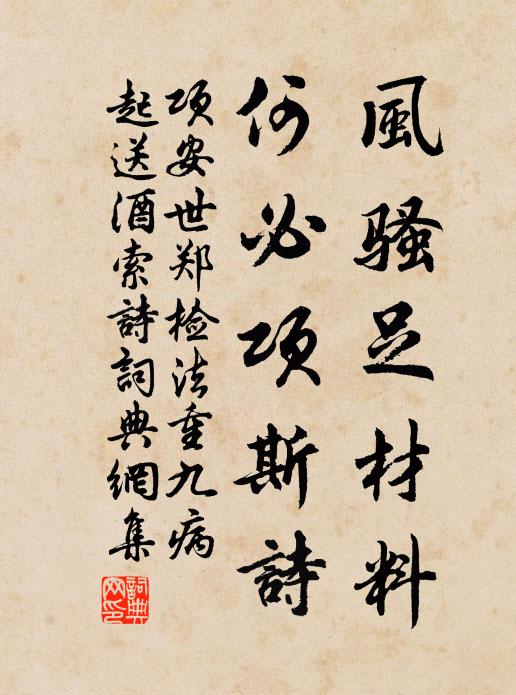 風騷足材料
何必項斯詩
项安世郑检法重九病
起送酒索詩詞典網集
詞典網印